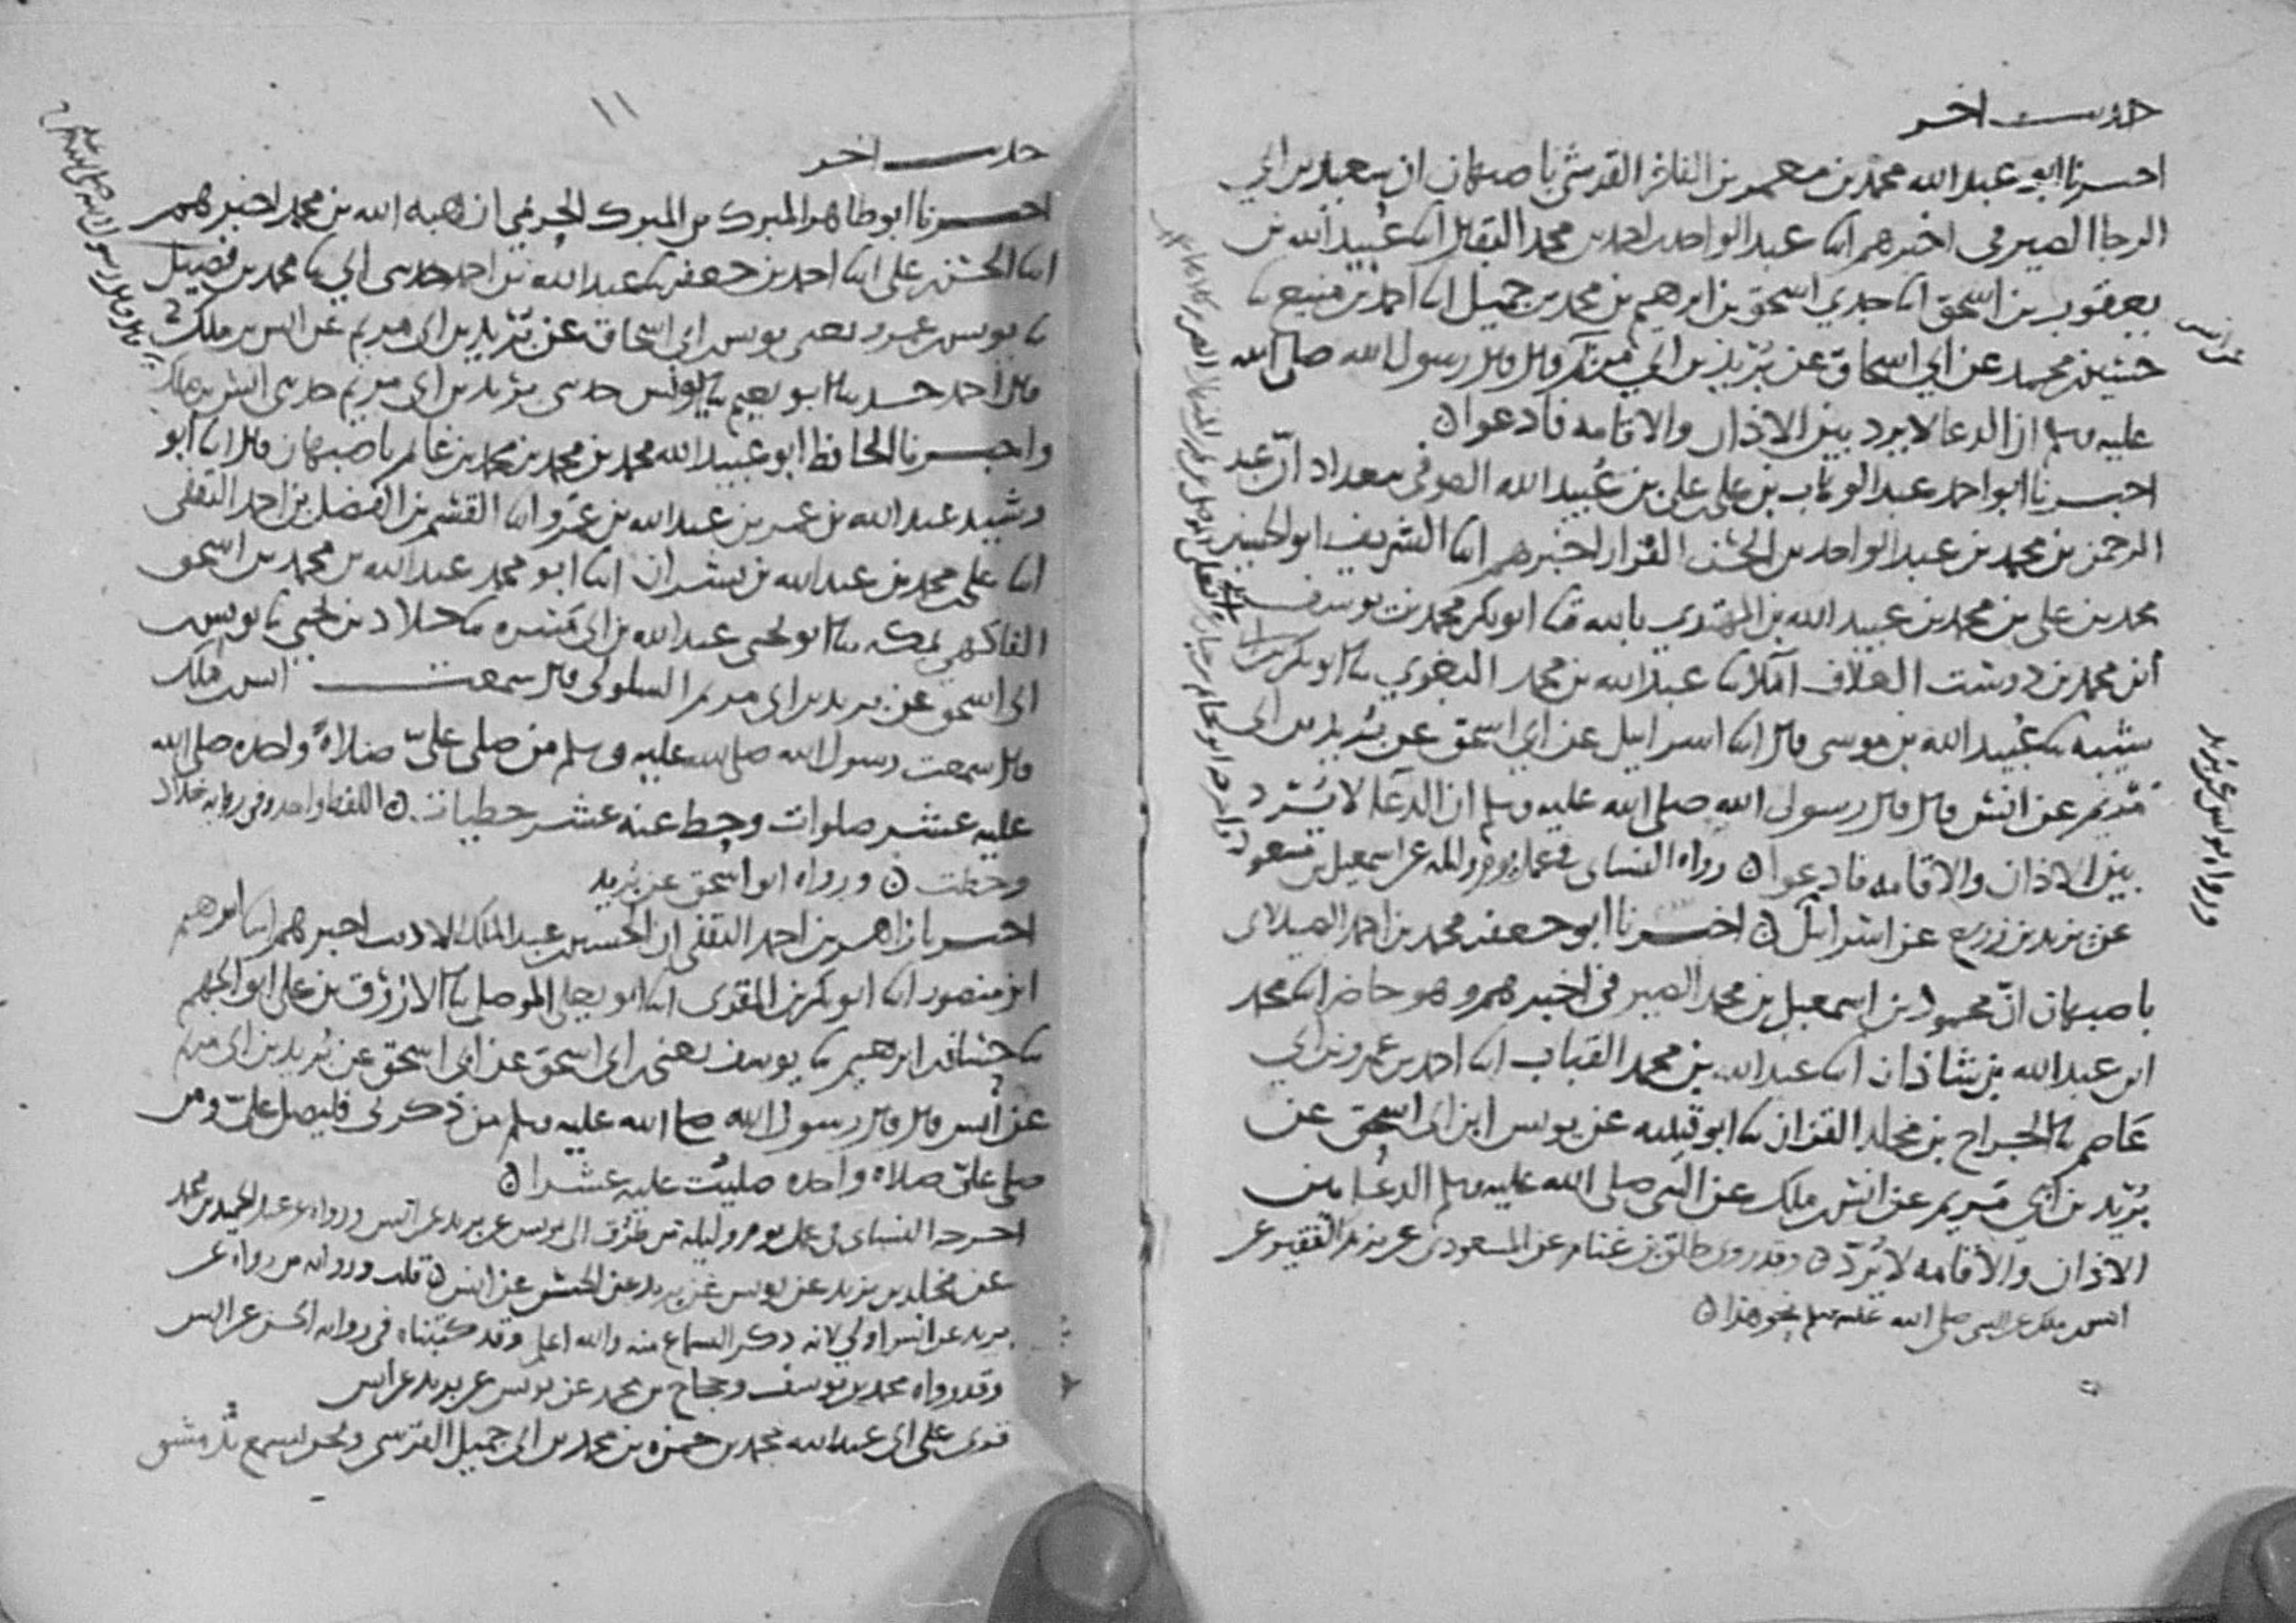 حديث اخر
اخبرنا ابو عبد الله محمد بن معمر بن الفاخر القرشي باصبهان ان سعيد بن ابي
الرجا الصيرفي اخبرهم ابنا عبد الواحد بن احمد بن محمد البقال ابنا عبيد الله بن
يعقوب بن اسحق ابنا جدي اسحق بن ابرهيم بن محمد بن جميل ابنا احمد بن منيع ثنا
حسين بن محمد عن ابي اسحاق عن بريد بن ابي مريم قال قال رسول الله صلى الله
عن انس
عليه وسلم ان الدعا لا يرد بين الاذان والاقامه فادعوا ن
اخبرنا ابو احمد عبد الوهاب بن علي بن علي بن عبيد الله الصوفي ببغداد ان عبد
الرحمن بن محمد بن عبد الواحد بن الحسن القزاز اخبرهم ابنا الشريف ابو الحسين
محمد بن علي بن محمد بن عبيد الله بن المهتدي بالله ثنا ابو بكر محمد بن يوسف
ابن محمد بن دوست العلاف املا ثنا عبد الله بن محمد البغوي ثنا ابو بكر بن ابي
شيبه ثنا عبيد الله بن موسى قال ابنا اسرايل عن ابي اسحق عن بريد بن ابي
مريم عن انس قال قال رسول الله صلى الله عليه وسلم ان الدعا لا يرد
بين الاذان والاقامه فادعوا ن رواه النساى في عمل يوم وليله عن اسمعيل بن مسعود
عن يزيد بن زريع عن اسرايل ن اخبرنا ابو جعفر محمد بن احمد الصيدلاى
باصبهان ان محمود بن اسمعيل بن محمد الصيرفي اخبرهم وهو حاضر ابنا محمد
ابن عبد الله بن شاذان ابنا عبد الله بن محمد القباب ابنا احمد بن عمرو بن ابي
عاصم ثنا الجراح بن مخلد القزاز ثنا ابو قتيبه عن يونس ابن ابي اسحق عن
بريد بن ابي مريم عن انس بن ملك عن النبي صلى الله عليه وسلم الدعا بين
الاذان والاقامه لا يرد ن وقد روى طلق بن غنام عن المسعودي عن يزيد الفقير عن
انس بن ملك عن النبي صلى الله عليه وسلم نحو هذا ن
ورواه يونس عن بريد
١١
حديث اخر
اخبرنا ابو طاهر المبرك بن المبرك الحريمي ان هبه الله بن محمد اخبرهم
ابنا الحسن بن علي ابنا احمد بن جعفر ثنا عبد الله بن احمد حدثني ابي ثنا محمد بن فضيل
ثنا يونس بن عمرو يعني يونس بن ابي اسحاق عن بريد بن ابي مريم عن انس بن ملك ح
قال احمد وحدثنا ابو نعيم ثنا يونس حدثني بريد بن ابي مريم حدثني انس بن ملك
قال قال رسول الله صلى الله عليه وسلم ح
واخبرنا الحافظ ابو عبيد الله محمد بن محمد بن محمد بن غانم باصبهان قال ابنا ابو
رشيد عبد الله بن عمر بن عبد الله بن عمرو ابنا القسم بن الفضل بن احمد الثقفي
ابنا علي بن محمد بن عبد الله بن بشران ابنا ابو محمد عبد الله بن محمد بن اسحق
الفاكهي بمكه ثنا ابو يحيى عبد الله بن ابي مسره ثنا خلاد بن يحيى ثنا يونس بن
ابي اسحق عن بريد بن ابي مريم السلولي قال سمعت انس بن ملك
قال سمعت رسول الله صلى الله عليه وسلم من صلى علي صلاة واحده صلى الله
عليه عشر صلوات وحط عنه عشر خطيات ن اللفظ واحد وفي روايه خلاد
وحطت ن ورواه ابو اسحق عن بريد
اخبرنا زاهر بن احمد الثقفي ان الحسين بن عبد الملك الاديب اخبرهم ابنا ابرهيم
ابن منصور ابنا ابو بكر بن المقرى ابنا ابو يعلى الموصلي ثنا الازرق بن علي ابو الجهم
ثنا حسان بن ابرهيم ثنا يوسف يعني ابن ابي اسحق عن ابي اسحق عن بريد بن ابي مريم
عن انس قال قال رسول الله صلى الله عليه وسلم من ذكرني فليصل علي ومن
صلى علي صلاه واحده صليت عليه عشرا ن
اخرجه النساى في عمل يوم وليله من طرق الى يونس عن بريد عن انس ورواه عن عبد الحميد بن محمد
عن مخلد بن يزيد عن يونس عن بريد عن الحسن عن انس ن قلت وروايه من رواه عن
بريد عن انس اولى لانه ذكر السماع منه والله اعلم وقد كتبناه في روايه الحسن عن انس
وقد رواه محمد بن يوسف وحجاج بن محمد عن يونس عن بريد عن انس
قرى على ابي عبد الله محمد بن حمزه بن محمد بن ابي جميل القرشي ونحن نسمع بدمشق